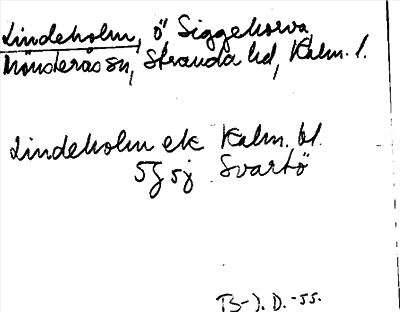 Lindeholm, ö Siggehorva,
Mönsterås sn, Stranda hd, Kalm. l.
Lindeholm ek Kalm. bl.
5J 5j Svartö